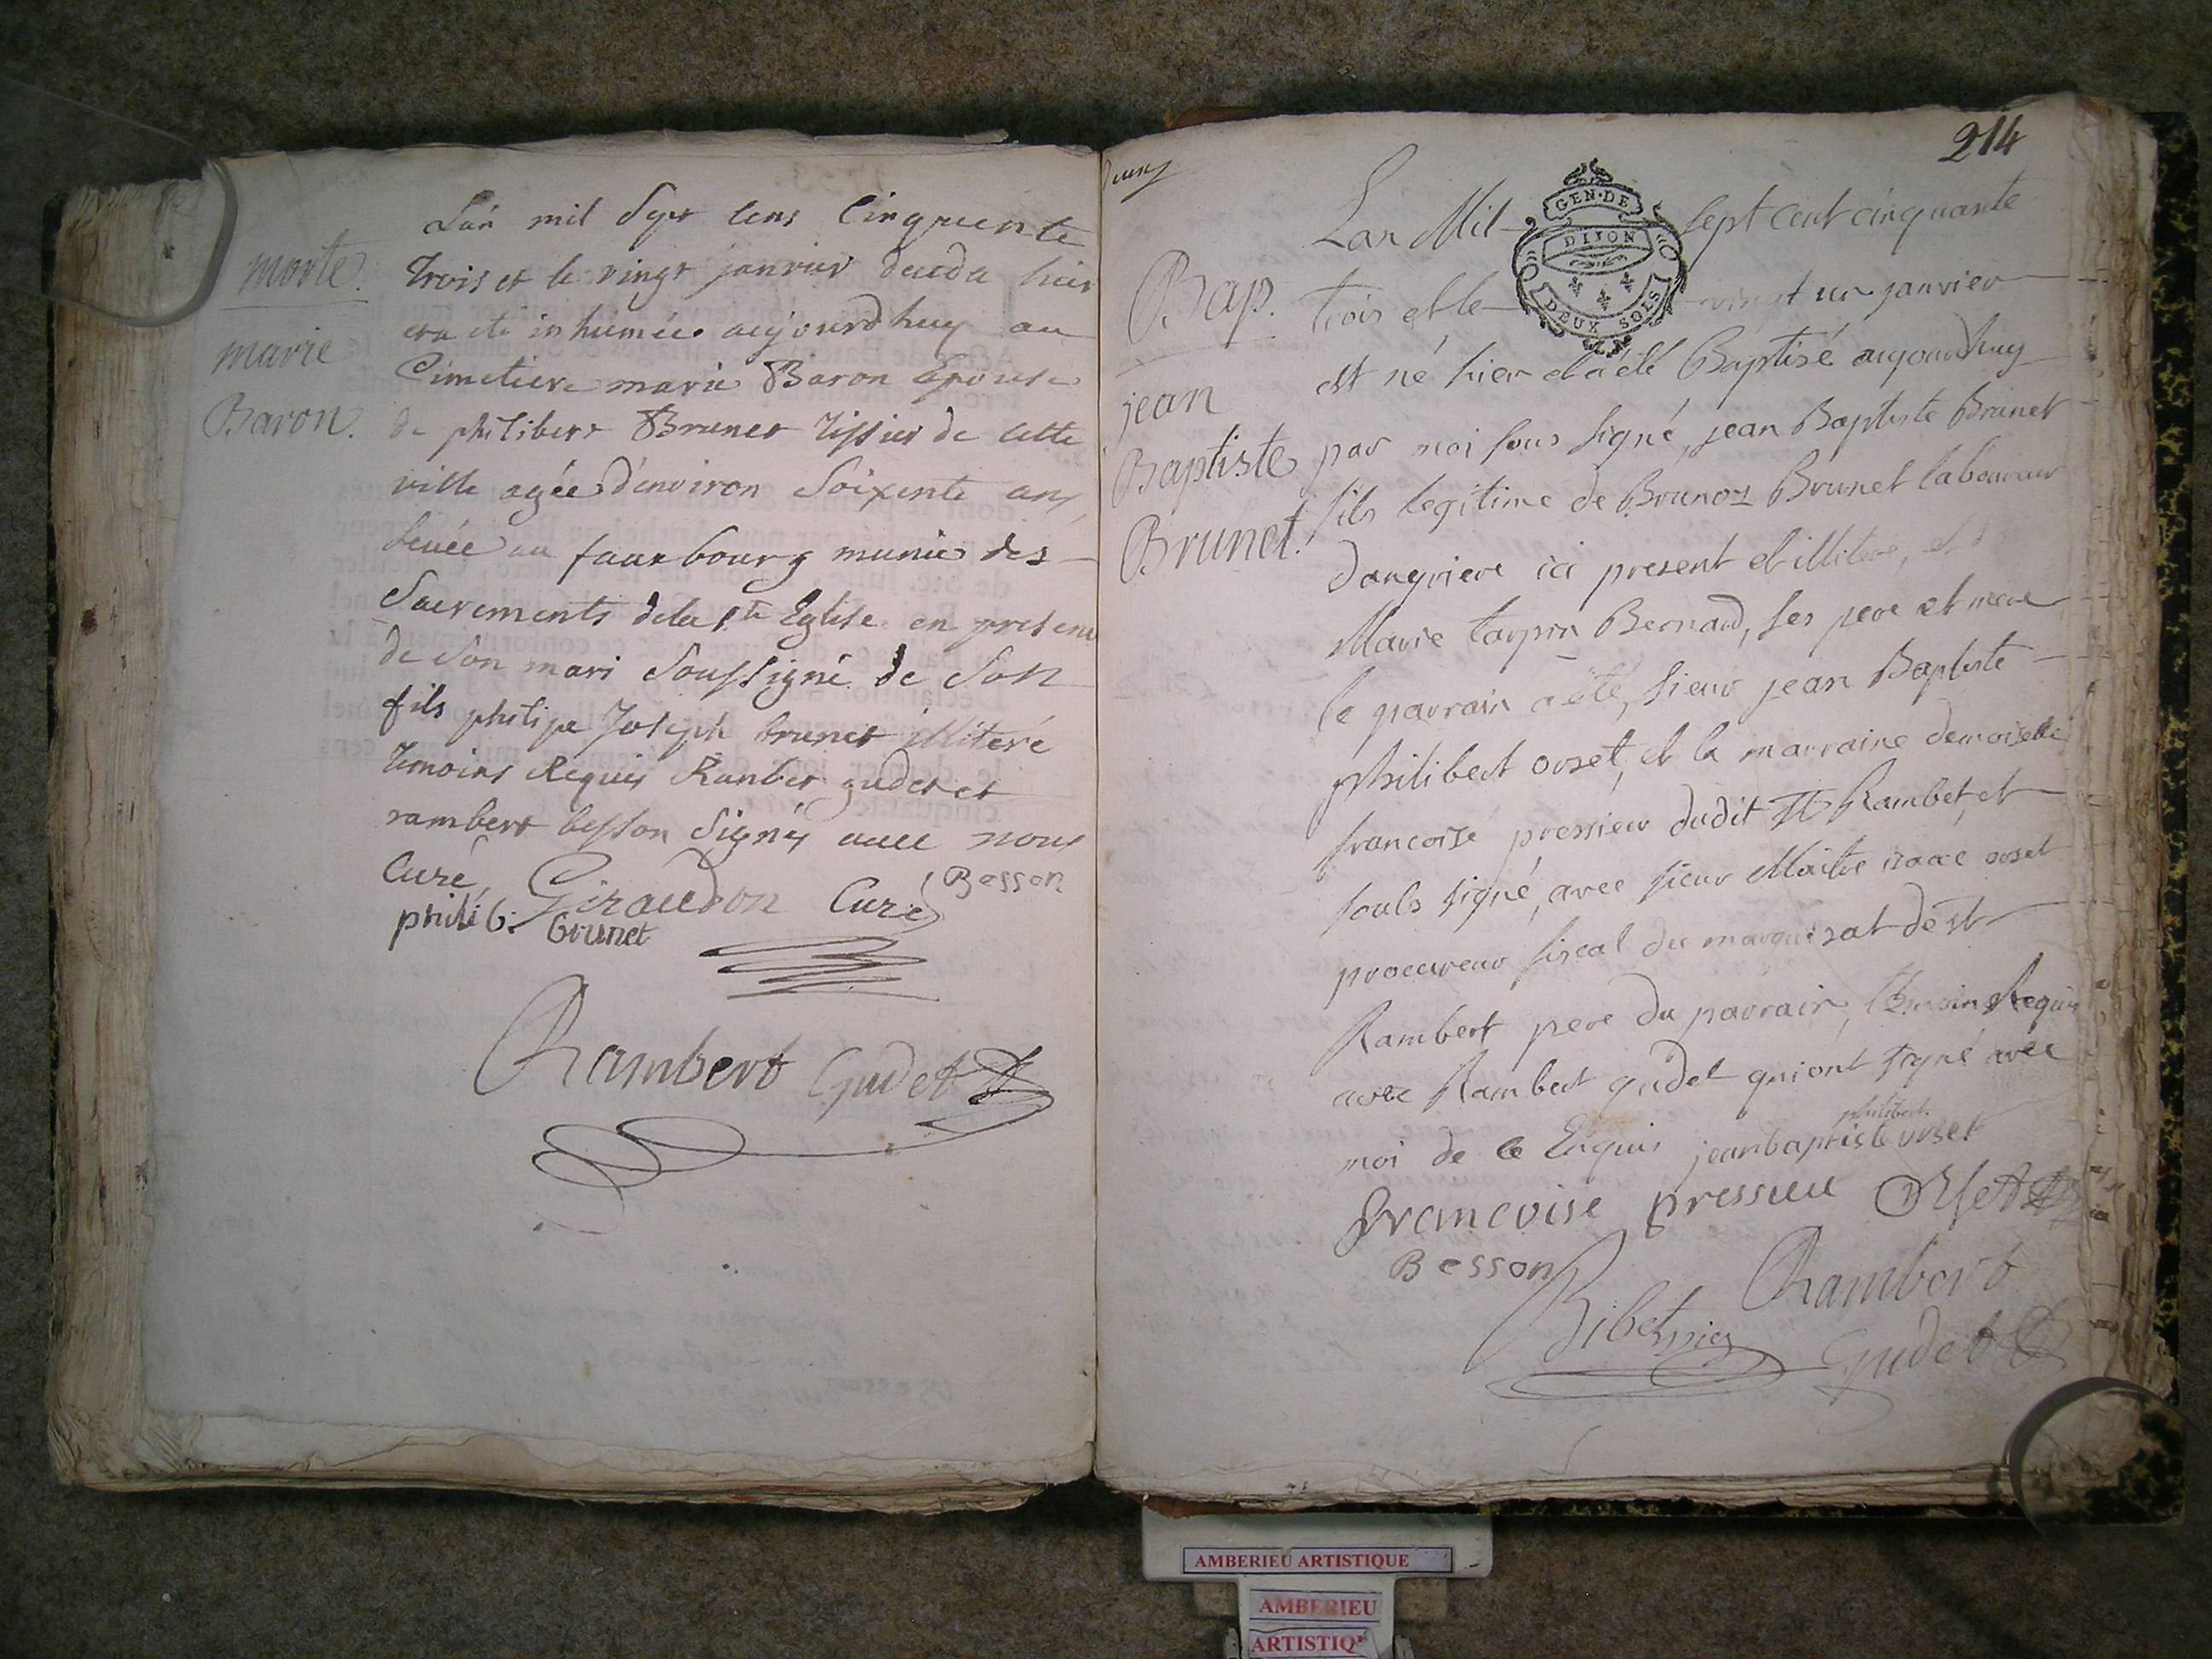 morte.
marie
Baron.
Lan mil Sept Cens Cinquente
trois et le vingt janvier deceda hier
et a eté inhumée aujourd huy au
Cimetiere marie Baron Epouse
de philibert Brunet tissier de cette
ville agée d'environ Soixente ans,
au fauxbourg munie des
Sacrements de la Ste Eglise en presence
de Son mari Soussigné de Son
fils philipe Joseph brunet illiteré
temoins Requis Ranber gudet et
rambert besson Signés avec nous
Curé, Giraudon Curé Besson
philib: brunet
Rambert Gudet
214
Bap.
jean
Baptiste
Brunet.
GEN·DE
DIJON
DEUX SOLS
Lan Mil sept cent cinquante
trois et le vingt un janvier
est né hier et a été Baptisé aujourdhuy
par moi sous signé, jean Baptiste Brunet
fils legitime de Brunot Brunet laboureur
dangriere ici present et illiteré, et
Marie tarpin Bernard, ses pere et mere
le parrain a été, sieur jean Baptiste
philibert orset, et la marraine demoiselle
francoise pressieu dudit St Rambet, et
souls signé, avec sieur Maitre isaac orset
procureur fiscal du marquisat de st
Rambert pere du parrain, témoins Requis
avec Rambert gudet qui ont signé avec
moi de ce Enquis jeanbaptiste philibert orset
francoise pressieu Orset
Besson Rambert
Gudet
AMBERIEU ARTISTIQUE
AMBERIEU
ARTISTIQ